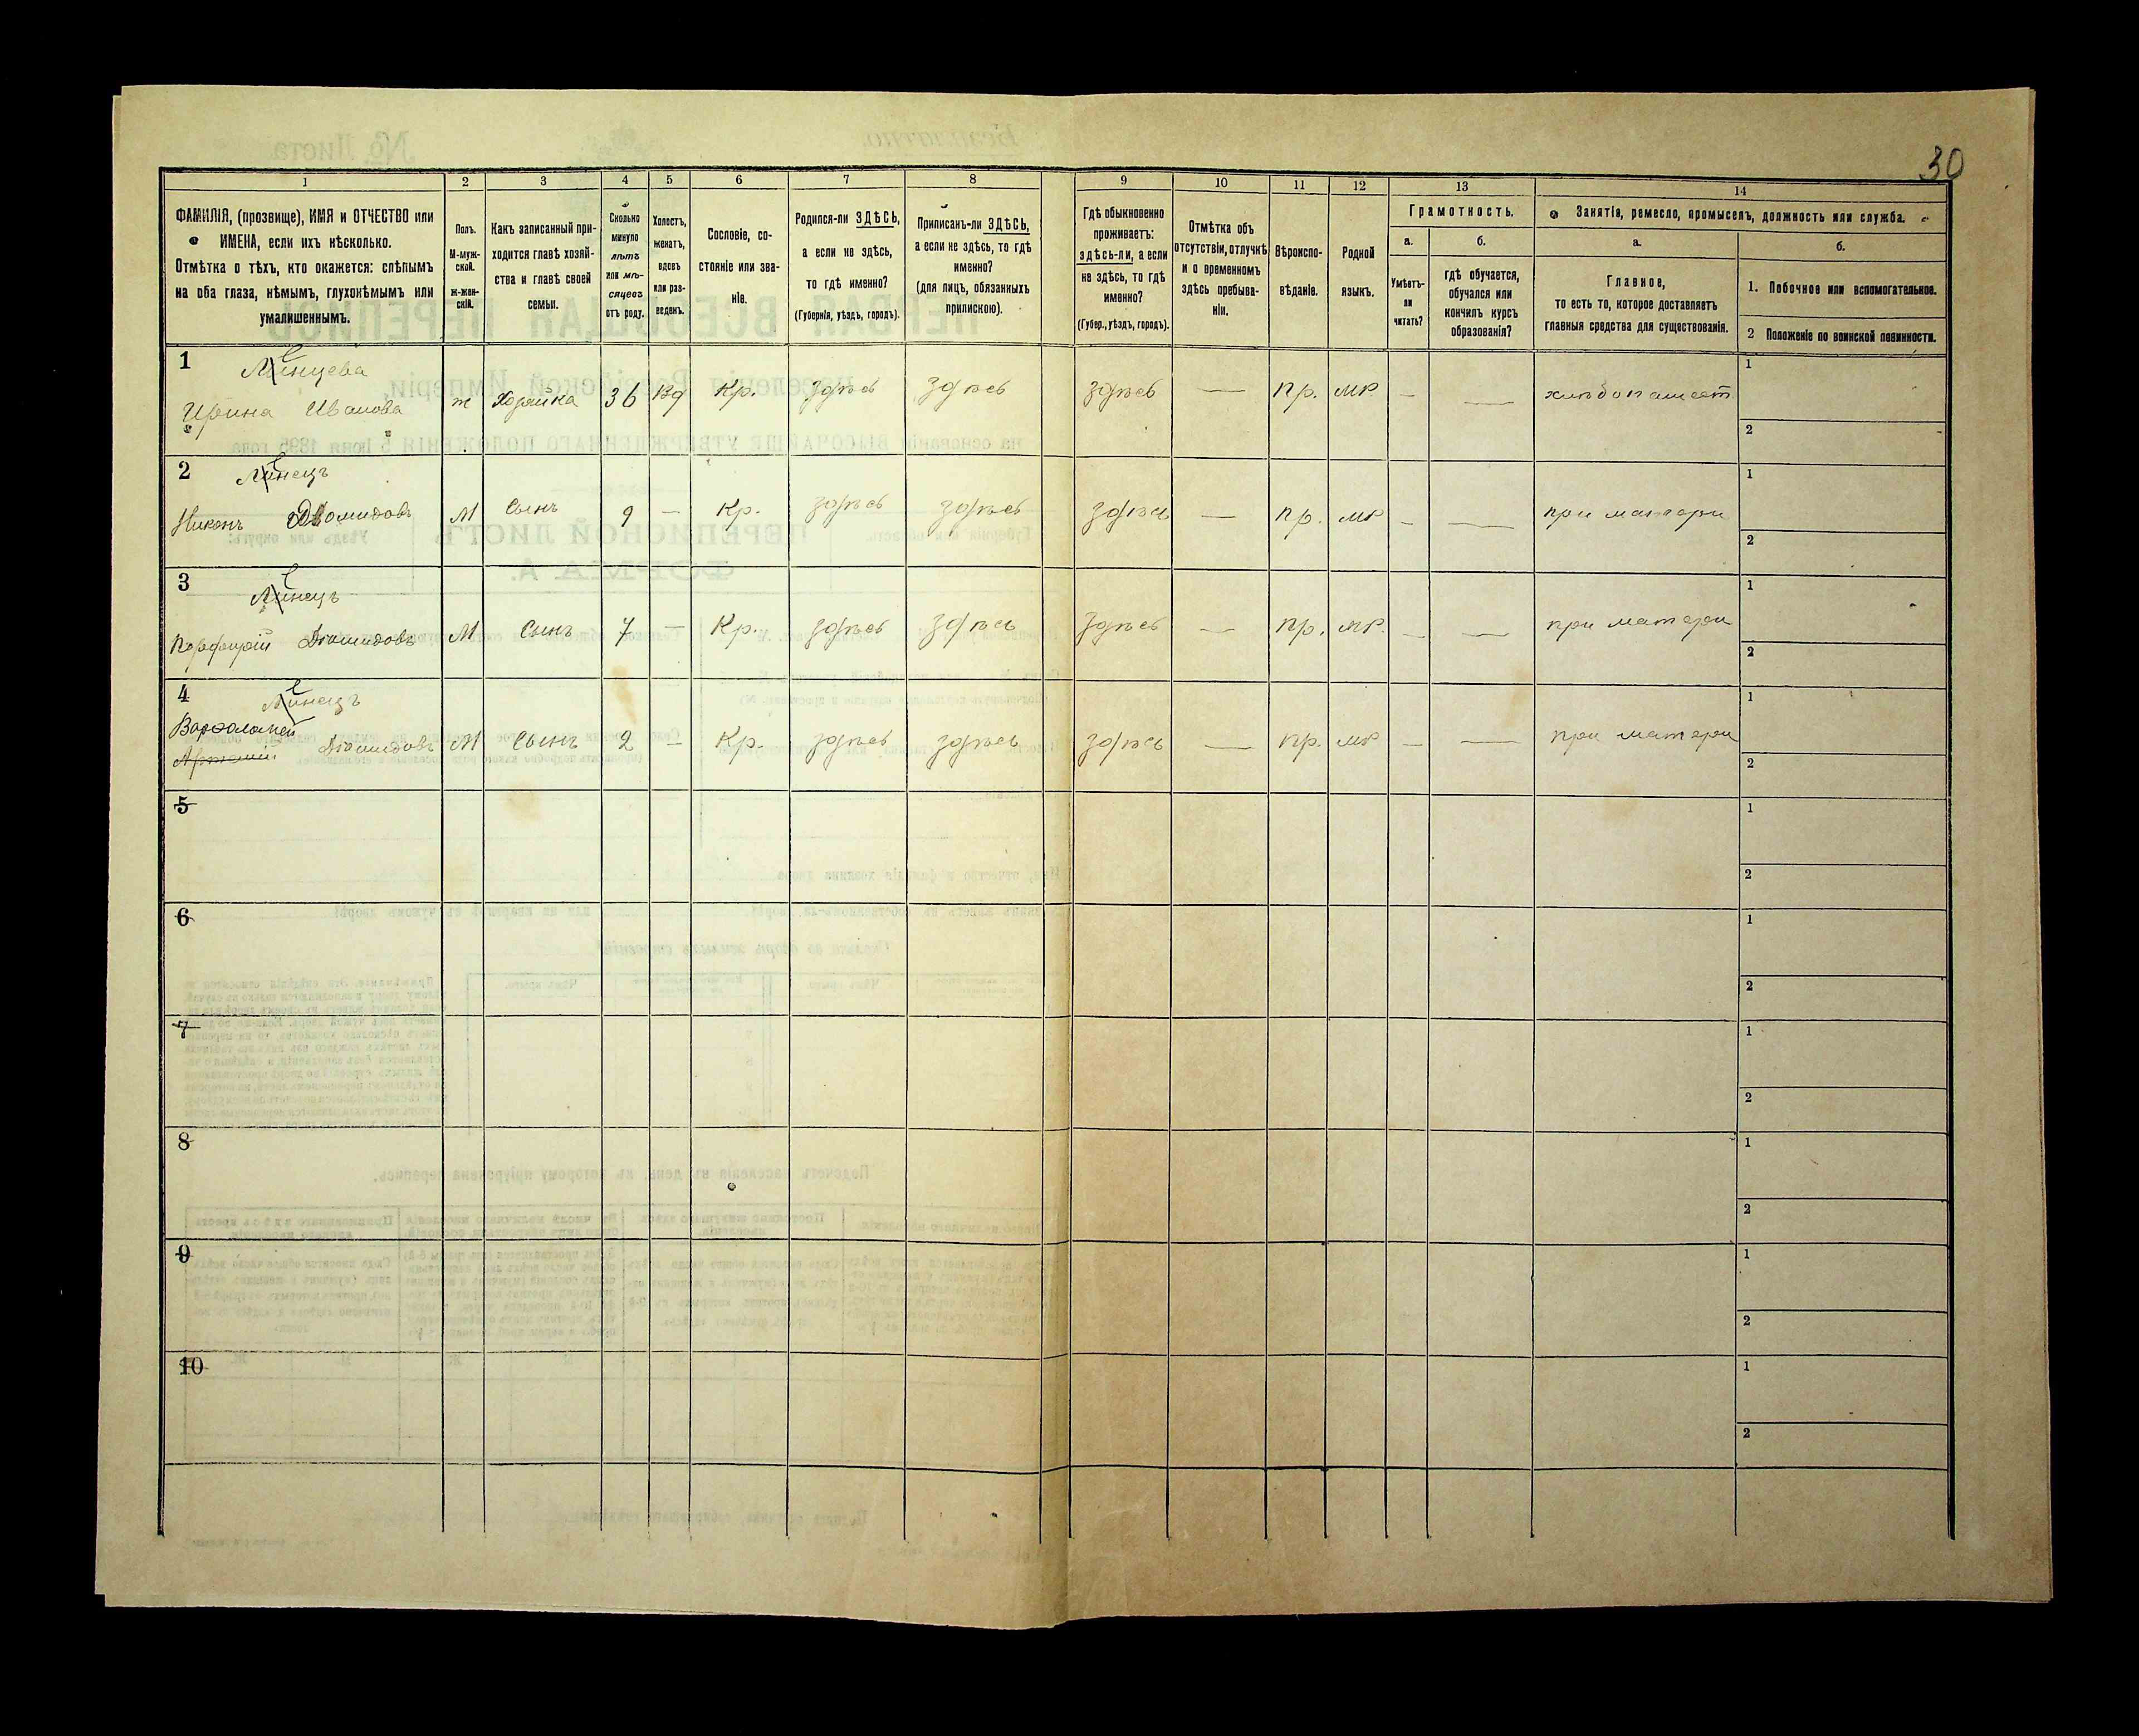 30
1 2 3 4 5 6 7 8 9 10 11 12 13 14
ФАМИЛІЯ, (прозвище), ИМЯ и ОТЧЕСТВО или
ИМЕНА, если ихъ нѣсколько.
Отмѣтка о тѣхъ, кто окажется: слѣпымъ
на оба глаза, нѣмымъ, глухонѣмымъ или
умалишеннымъ.
Полъ.
М-муж-
ской.
ж-жен-
скій.
Какъ записанный при-
ходится главѣ хозяй-
ства и главѣ своей
семьи.
Сколько
минуло
лѣтъ
или мѣ-
сяцевъ
отъ роду.
Холостъ,
женатъ,
вдовъ
или раз-
веденъ.
Сословіе, со-
стояніе или зва-
ніе.
Родился-ли ЗДѢСЬ,
а если не здѣсь,
то гдѣ именно?
(Губернія, уѣздъ, городъ).
Приписанъ-ли ЗДѢСЬ,
а если не здѣсь, то гдѣ
именно?
(для лицъ, обязанныхъ
припискою).
Гдѣ обыкновенно
проживаетъ:
здѣсь-ли, а если
не здѣсь, то гдѣ
именно?
(Губер., уѣздъ, городъ).
Отмѣтка объ
отсутствіи, отлучкѣ
и о временномъ
здѣсь пребыва-
ніи.
Вѣроиспо-
вѣданіе.
Родной
языкъ.
Грамотность.
а.
Умѣетъ-
ли
читать?
б.
гдѣ обучается,
обучался или
кончилъ курсъ
образованія?
Занятія, ремесло, промыселъ, должность или служба.
а.
Главное,
то есть то, которое доставляетъ
главныя средства для существованія.
б.
1. Побочное или вспомогательное.
2 Положеніе по воинской повинности.
1
Линцева
Ирина Иванова ж Хозяйка 36 Вд Кр. здѣсь здѣсь здѣсь — пр. мр — — хлѣбопашест
1
2
2
Линецъ
Никонъ Діомидовъ М Сынъ 9 — Кр. здѣсь здѣсь здѣсь — пр. мр — — при матери
1
2
3
Линецъ
Порфирій Діомидовъ М Сынъ 7 — Кр. здѣсь здѣсь здѣсь — пр. мр. — — при матери
1
2
4
Линецъ
Варѳоломей
Артемій Діомидовъ М Сынъ 2 — Кр. здѣсь здѣсь здѣсь — пр. мр — — при матери
1
2
5
1
2
6
1
2
7
1
2
8
1
2
9
1
2
10
1
2